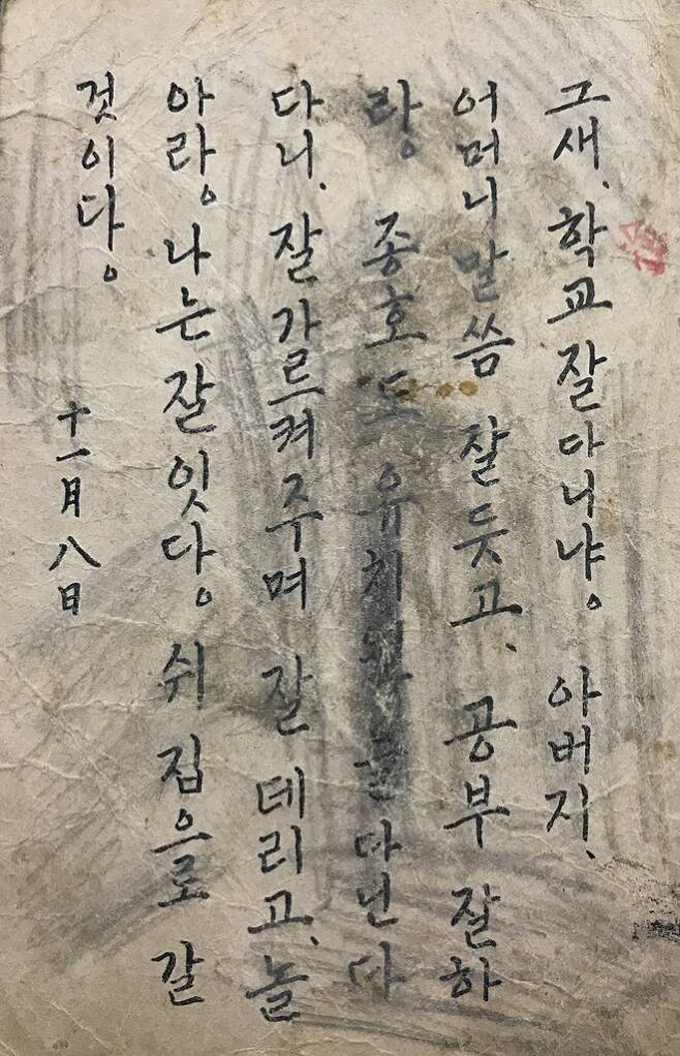 그새、학교 잘 다니냐。 아버지、
어머니 말씀 잘 듯고、 공부 잘 하
라。 종호도 유치원 다닌다
다니、 잘 가르켜 주며 잘 데리고、 놀
아라。 나는 잘 잇다。 쉬 집으로 갈
것이다。
十一月八日